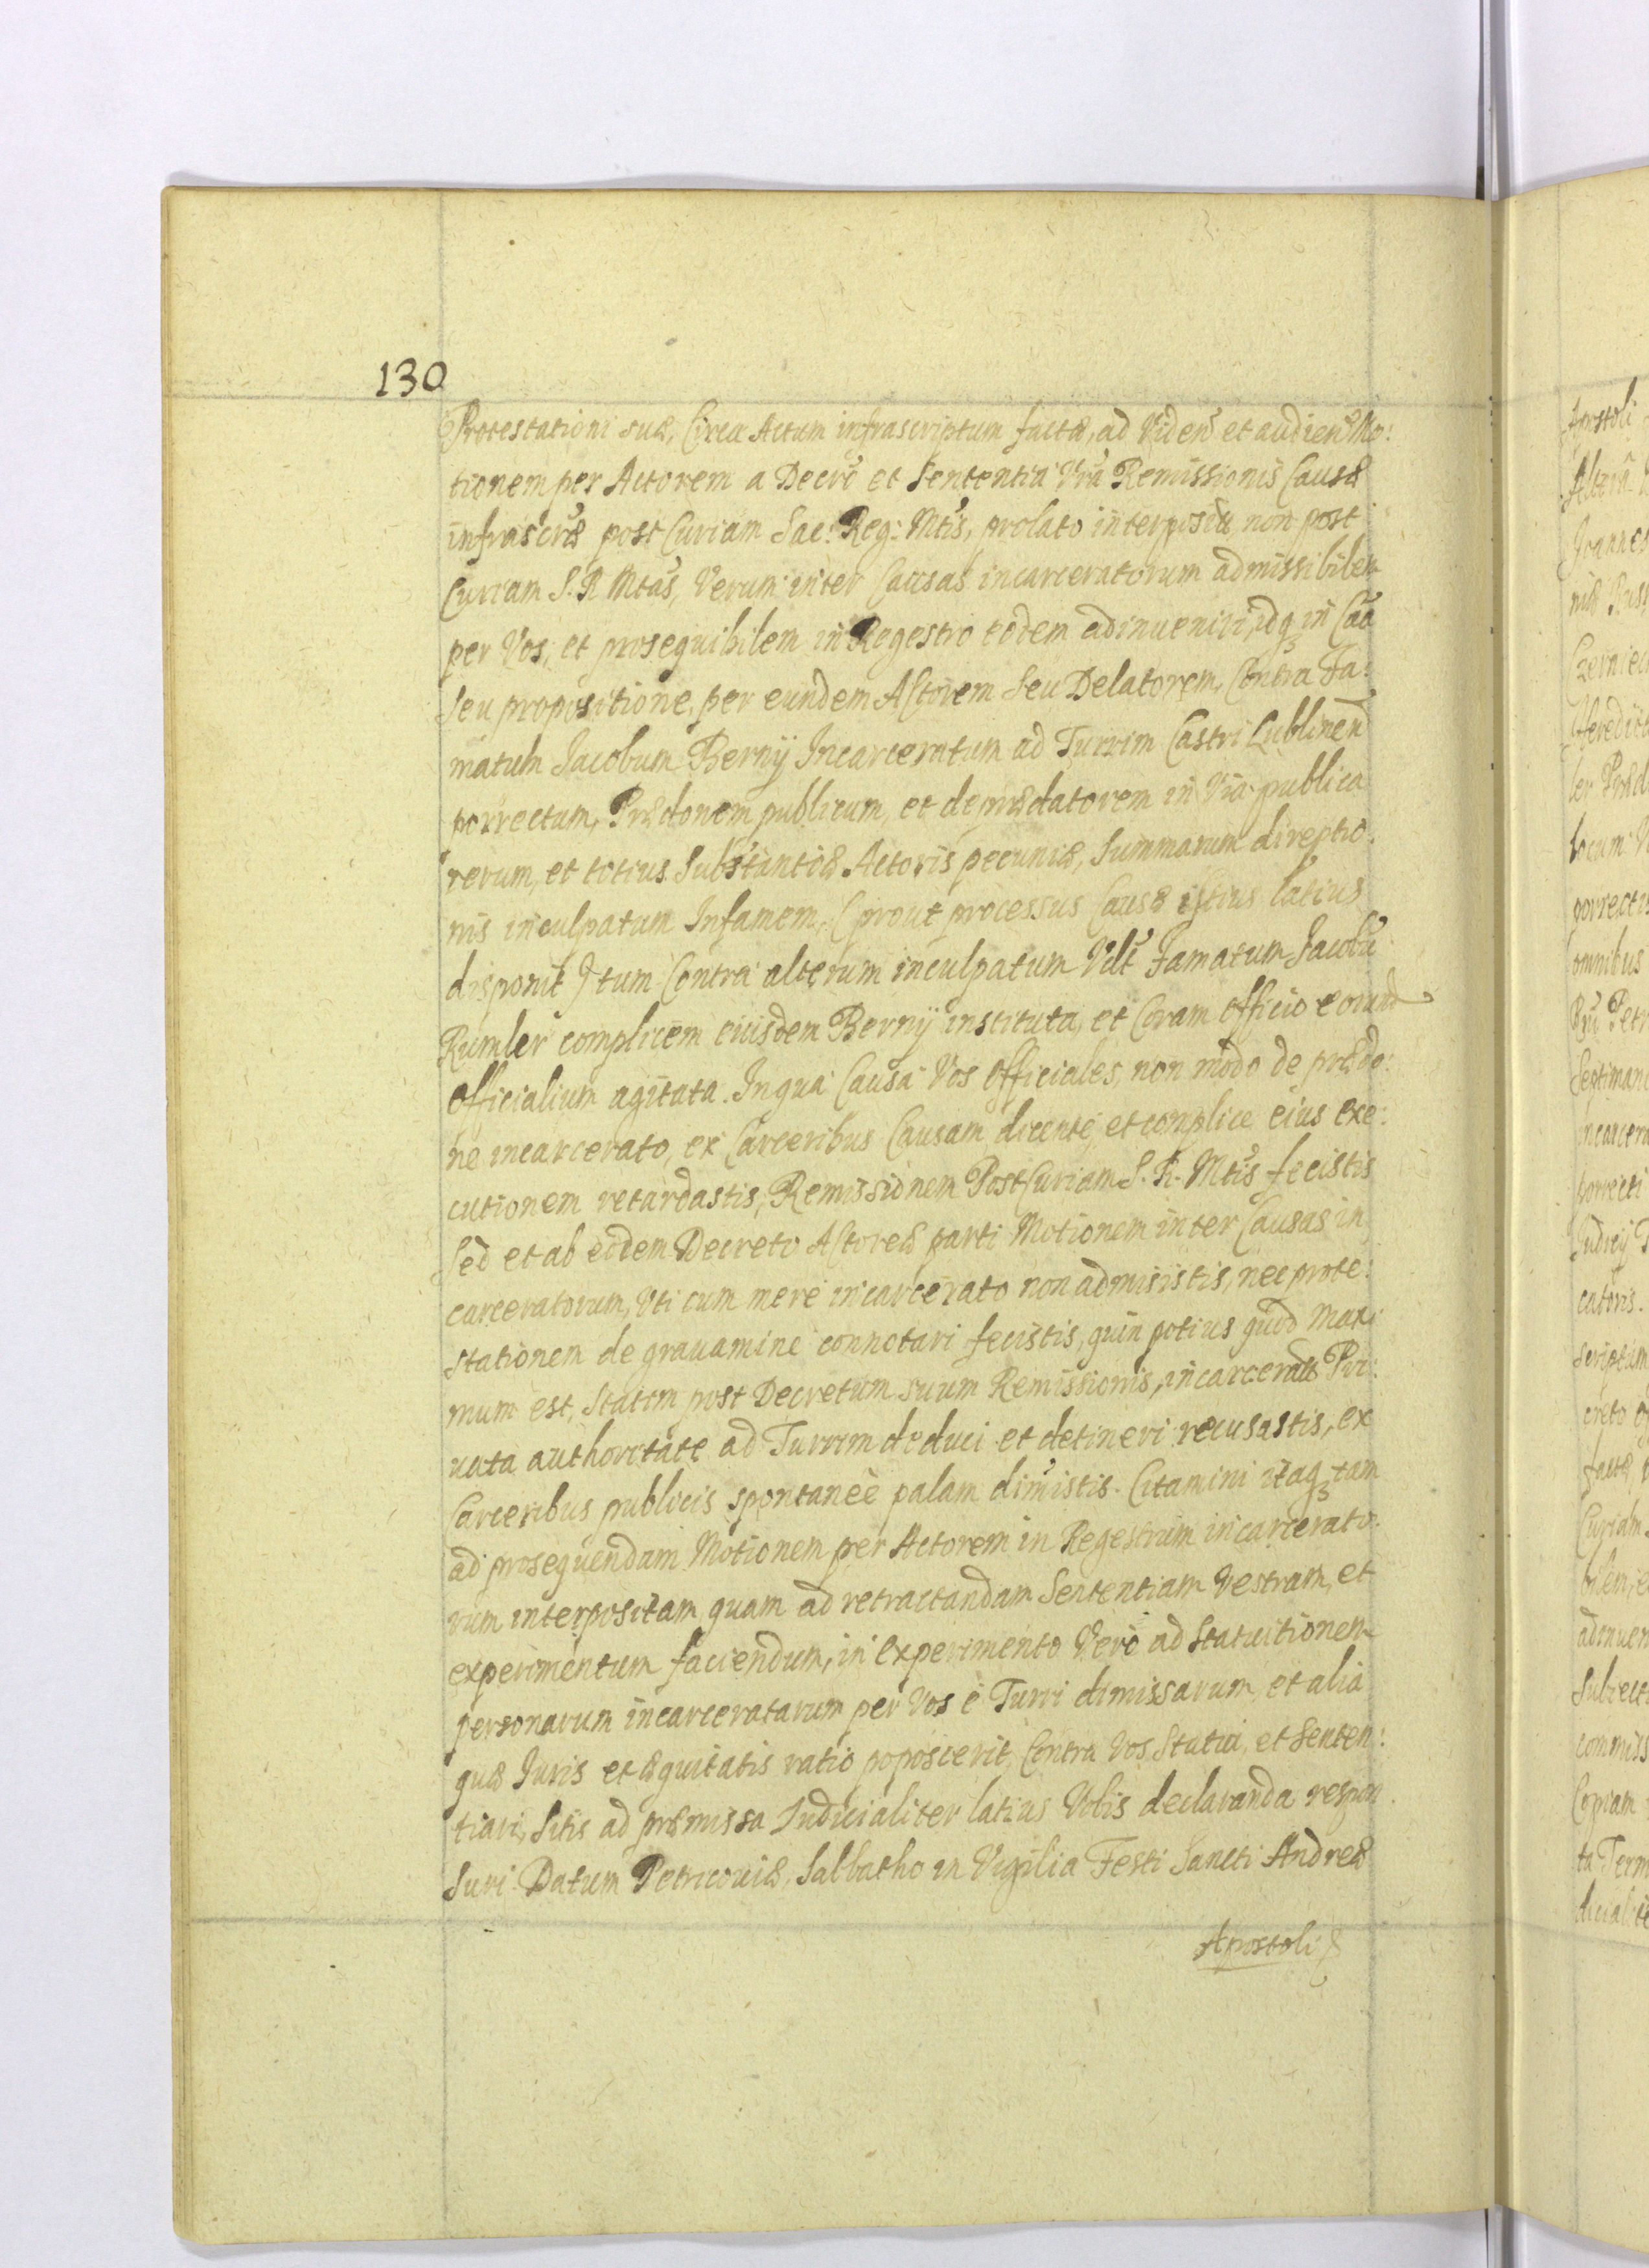 130
Protestationi suæ, Circa Actum infrascriptum factæ, ad Viden̄ et audien̄ Mo:
tionem per Actorem a Decrõ et Sententia Vrã Remissionis Causæ
infrascrõ post Curiam Sac: Reg: Mtis, prolato interposita, non post
Curiam S. R Mtis, Verum inter Causas incarceratorum admissibilem
per Vos, et prosequibilem in Regestro eodem adinueniri, idq3 in Caã
seu propositione, per eundem Actorem seu Delatorem, Contra Fa:
matum Jacobum Bernÿ Incarceratum ad Turrim Castri Lublinen̄
porrectum, Prædonem publicum, et deprædatorem in Via publica
rerum, et totius Substantiæ Actoris pecuniæ, Summarum direptio:
nis inculpatum Infamem, (prout processus Causæ istius latius
disponit) tum Contra alterum inculpatum Vilt Famatum Jacobũ
Rumler complicem eiusdem Bernÿ instituta, et Coram Officio eorund
Officialium agitata. In qua Causa Vos Officiales, non modo de prædo:
ne incarcerato, ex Carceribus Causam dicente, et complice eius exe:
cutionem retardastis, Remissionem Post Curiam S. R. Mtis fecistis
Sed et ab eodem Decreto Actoreæ parti Motionem inter Causas in
carceratorum, Vti cum mere incarcerato non admisistis, nec prote:
stationem de grauamine connotari fecistis, quin potius quod maxi
mum est, statim post Decretum suum Remissionis, incarceratũ Pri:
uata authoritate ad Turrim deduci et detineri recusastis, ex
Carceribus publicis spontaneè palam dimistis. Citamini itaq3 tam
ad prosequendam Motionem per Actorem in Regestrum incarcerato:
rum interpositam, quam ad retractandam Sententiam Vestram, et
experimentum faciendum, in experimento Vero ad Statuitionem
personarum incarceratarum per Vos è Turri dimissarum, et alia
quæ Juris et æquitatis ratio poposcerit, Contra Vos Statui, et Senten:
tiari, Sitis ad præmissa Judicialiter latius Vobis declaranda respon
suri. Datum Petricouiæ, Sabbatho in Vigilia Festi Sancti Andreæ
Apostoli